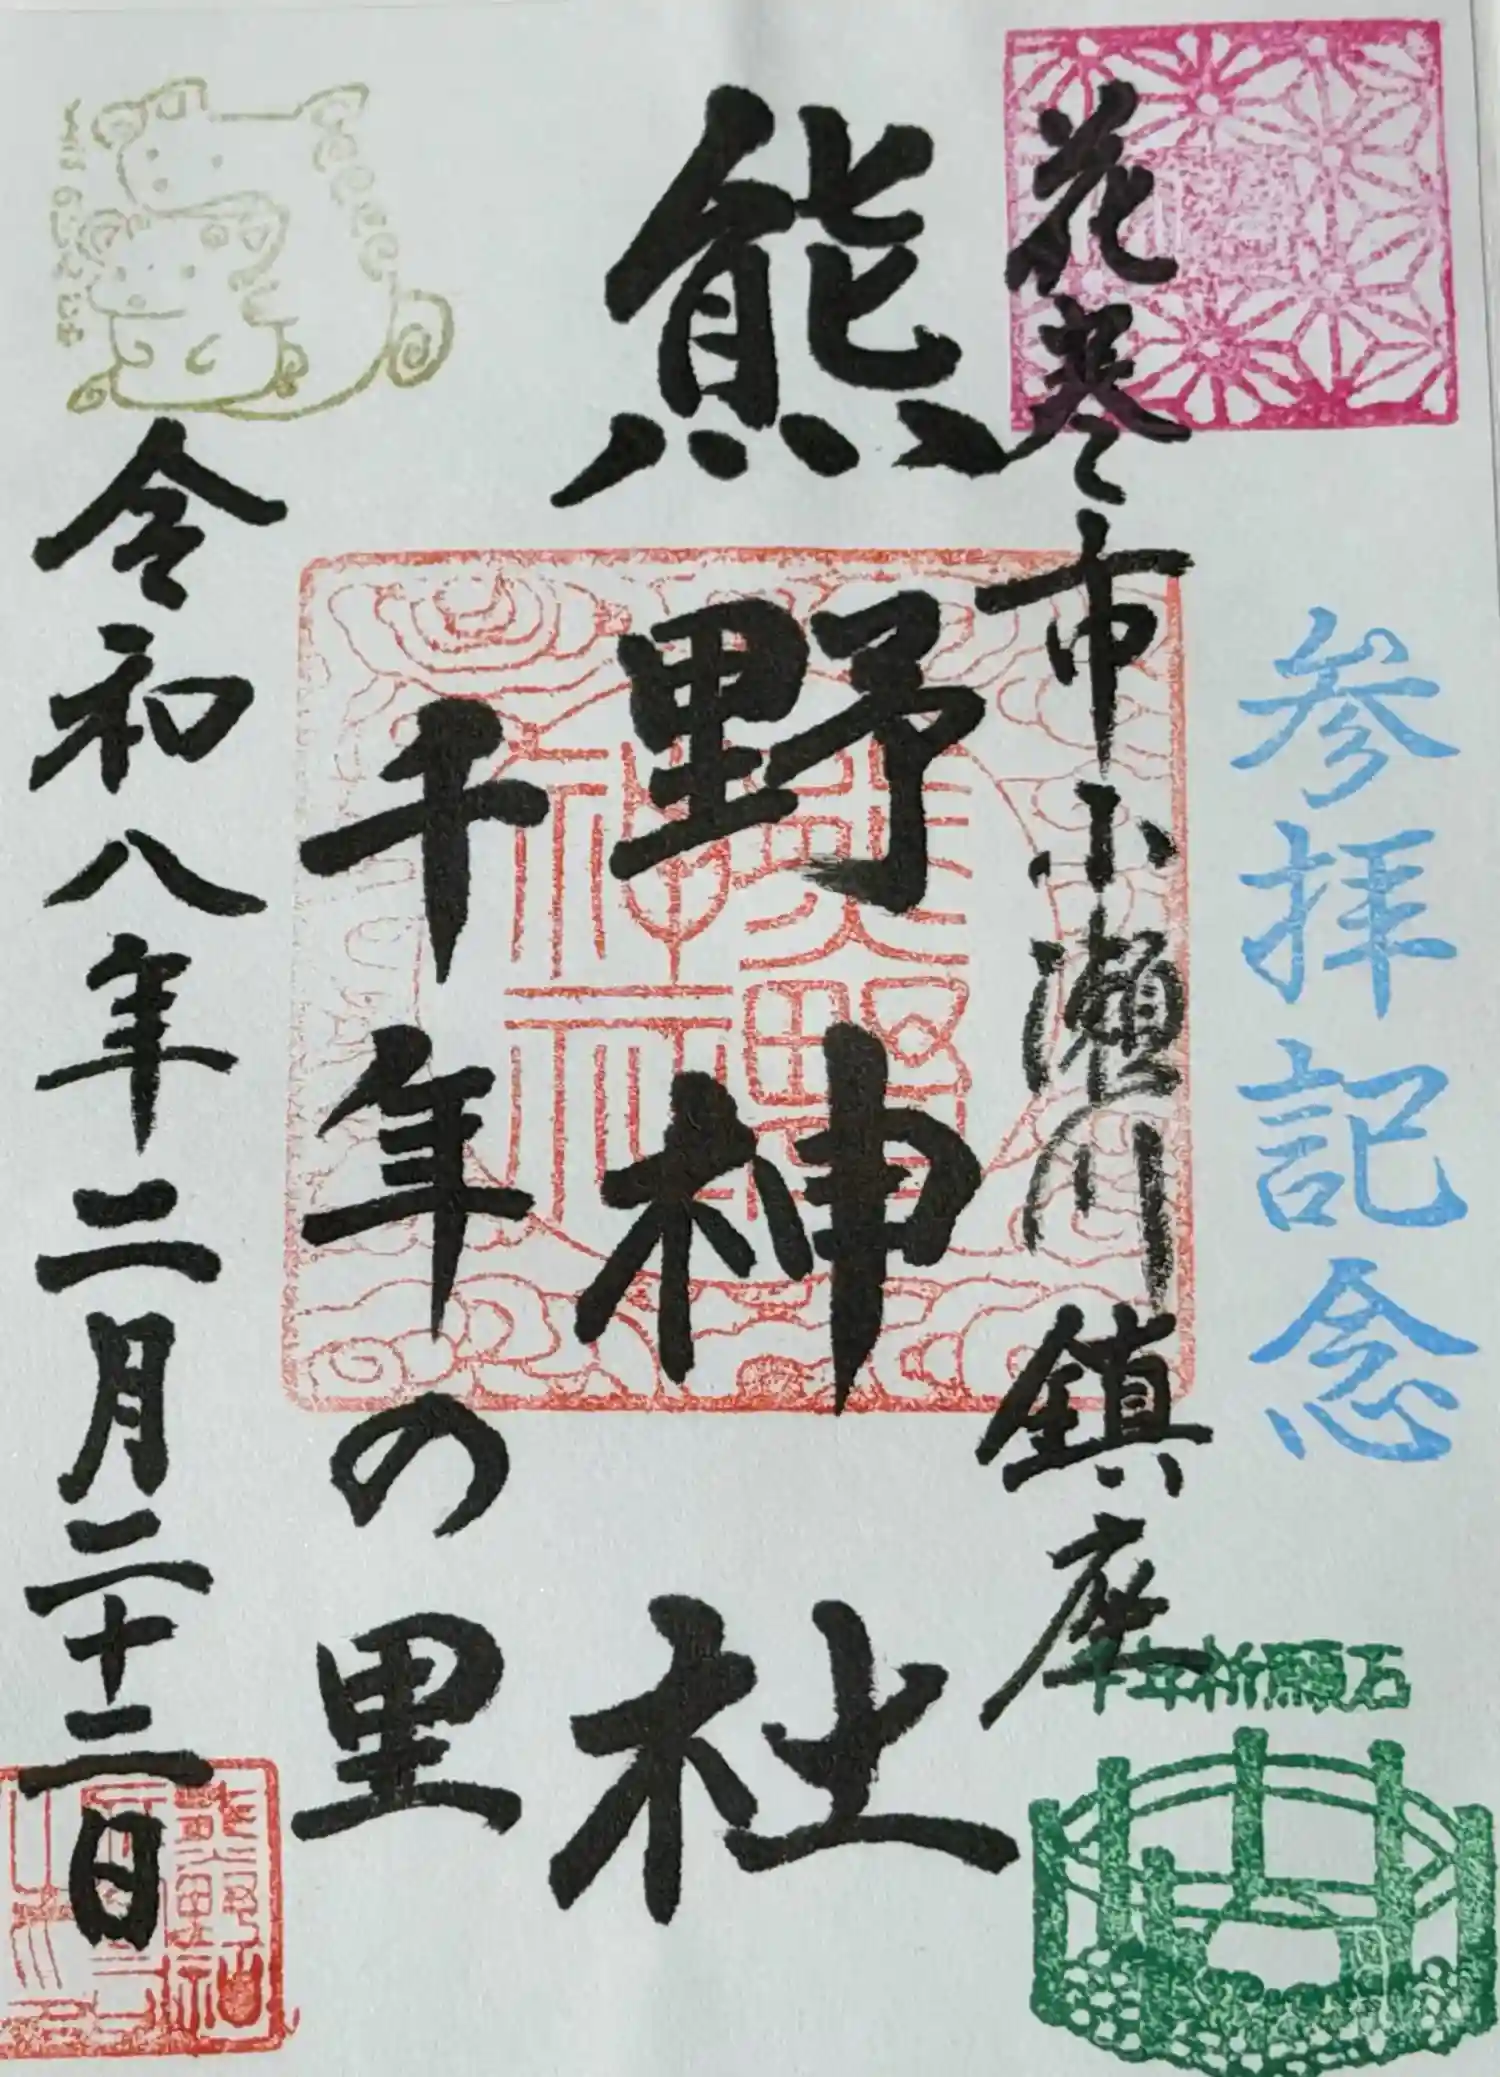 参拝記念
花巻市小瀬川鎮座
熊野神社
熊野神社
千年の里
令和八年二月二十二日
千年祈願石